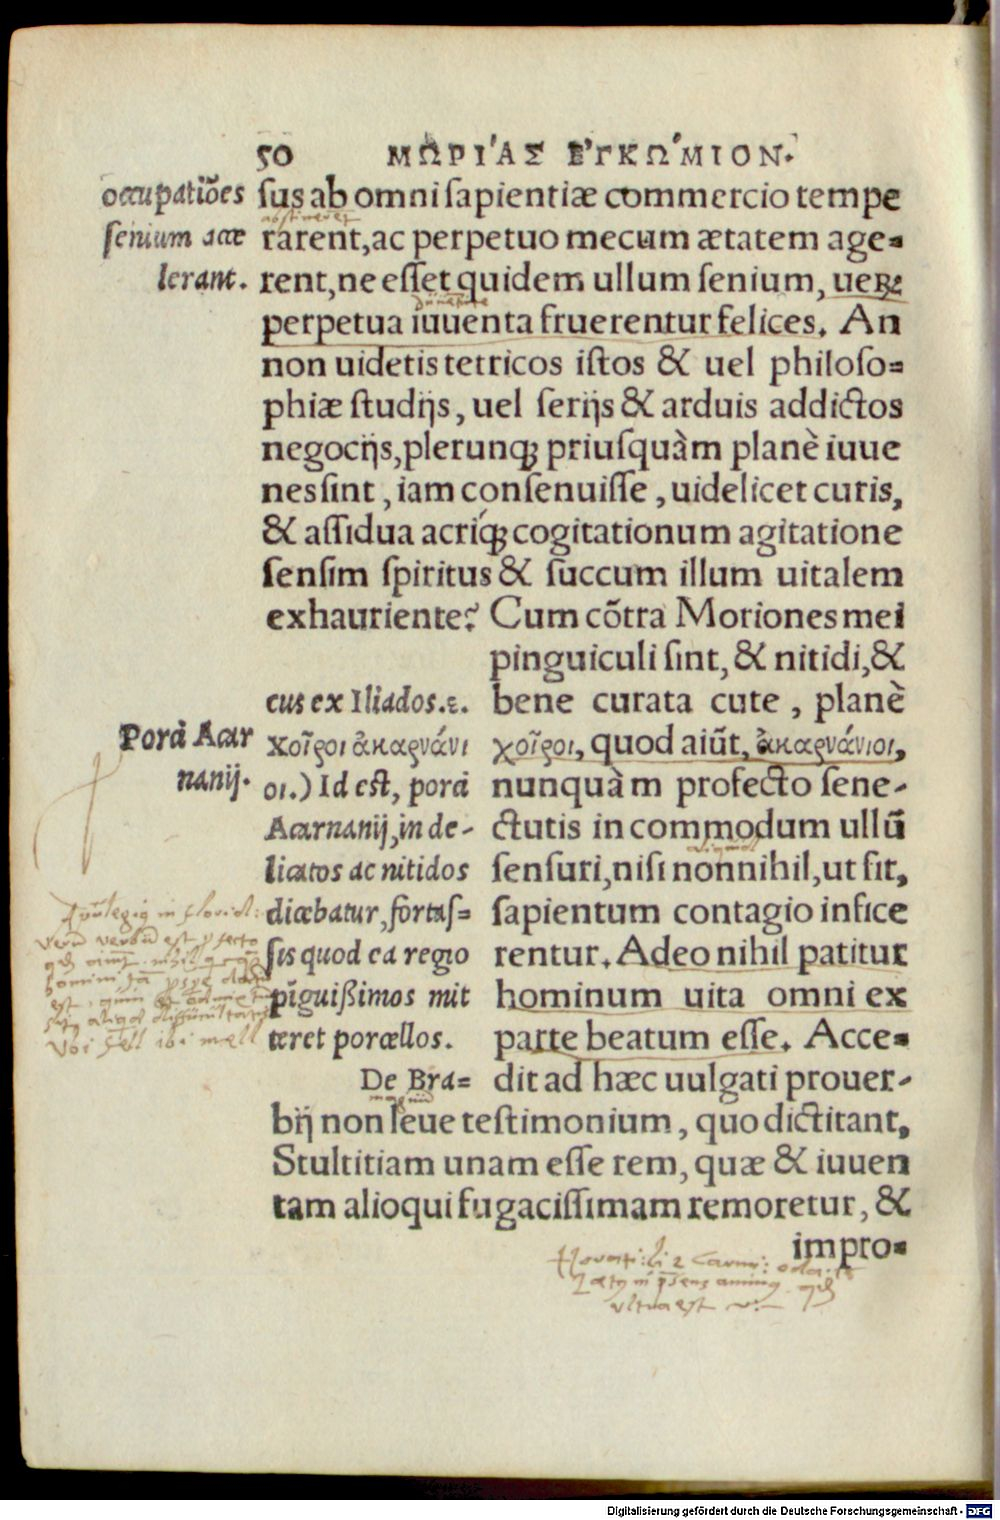 50 ΜΩΡΙ´ΑΣ ΕΓΚΩ´ΜΙΟΝ.
occupatiões
senium acce
lerant.
sus ab omni sapientiæ commercio tempe
abstinerent
rarent, ac perpetuo mecum ætatem age=
rent, ne esset quidem ullum senium, uerũ
perpetua iuuenta fruerentur felices. An
non uidetis tetricos istos & uel philoso=
phiæ studijs, uel serijs & arduis addictos
negocijs, plerunq; priusquàm planè iuue
nes sint, iam consenuisse, uidelicet curis,
& assidua acriq́; cogitationum agitatione
sensim spiritus & succum illum uitalem
exhauriente? Cum cõtra Moriones mei
pinguiculi sint, & nitidi, &
bene curata cute, planè
χοῖροι, quod aiũt, ἀκαρνάνιοι,
nunquàm profecto sene-
ctutis incommodum ullũ
sensuri, nisi nonnihil, ut fit,
sapientum contagio infice
rentur. Adeo nihil patitur
hominum uita omni ex
parte beatum esse. Acce=
dit ad hæc uulgati prouer-
bij non leue testimonium, quo dictitant,
Stultitiam unam esse rem, quæ & iuuen
tam alioqui fugacissimam remoretur, &
impro=
cus ex Iliados.ε.
χοῖροι ἀκαρνάνι
οι.) Id est, porci
Acarnanij, in de-
licatos ac nitidos
dicebatur, fortas=
sis quod ea regio
pĩguißimos mit
teret porcellos.
De Bra=
Porci Acar
nanij.
in florid:
verũ verbũ est
est
ubi fell ibi mell
Horati: li 2 Carmi: oda:
Lætus in præsens animus qđ
ultra est